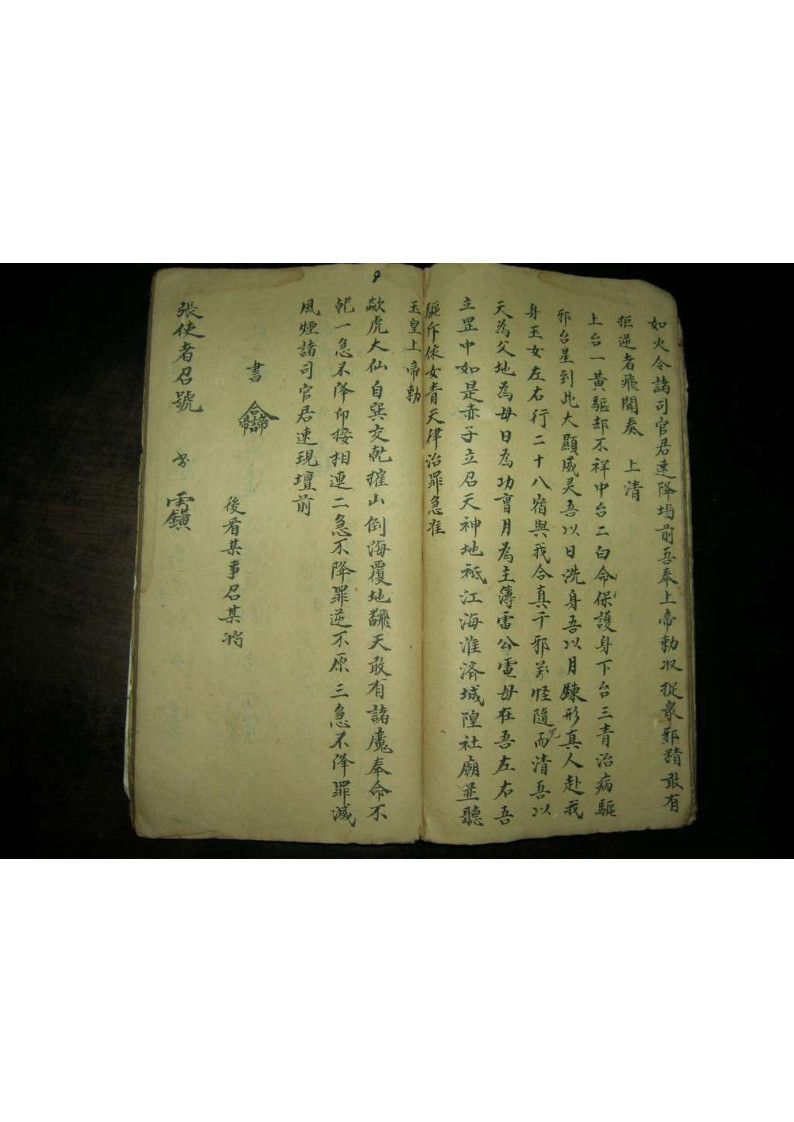 如火令諸司官君速降塲前吾奉上帝勅収捉衆邪精敢有
拒逆者飛開奏 上清
上台一黃驅却不祥中台二白命保護身下台三青治病驅
邪台星到此大顯威灵吾以日洗身吾以月鍊形真人赴我
身玉女左右行二十八宿與我合真千邪萬怪隨而清吾以
天為父地為母日為功曹月為主簿雷公電母在吾左右吾
立罡中如是赤子立召天神地祗江海淮濟城隍社廟並聽
驅斥依女青天律治罪急准
玉皇上帝勅
歘虎大仙自巽交乾摧山倒海覆地翻天敢有諸魔奉命不
乾一急不降印接相連二急不降罪逆不原三急不降罪滅
風煙諸司官君速現壇前
書
後看某事召某将
張使者召號